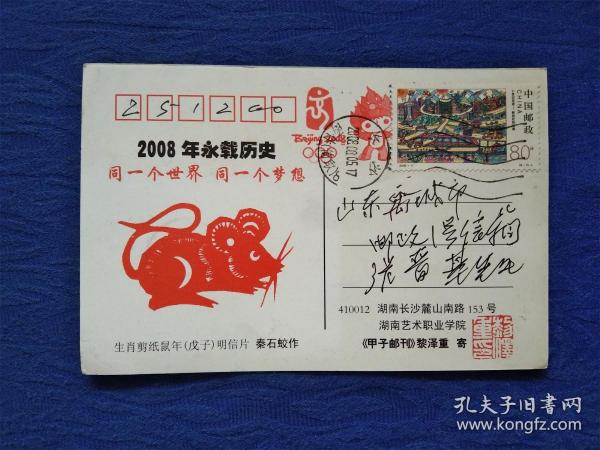 251200
2008 年永载历史
同一个世界 同一个梦想
生肖剪纸鼠年(戊子)明信片 秦石蛟作
Beijing 2008
中国邮政
CHINA
80
山东禹城市
邮政1号信箱
张
先生
410012 湖南长沙麓山南路 153 号
湖南艺术职业学院
《甲子邮刊》黎泽重 寄
孔夫子旧书网
www.kongfz.com